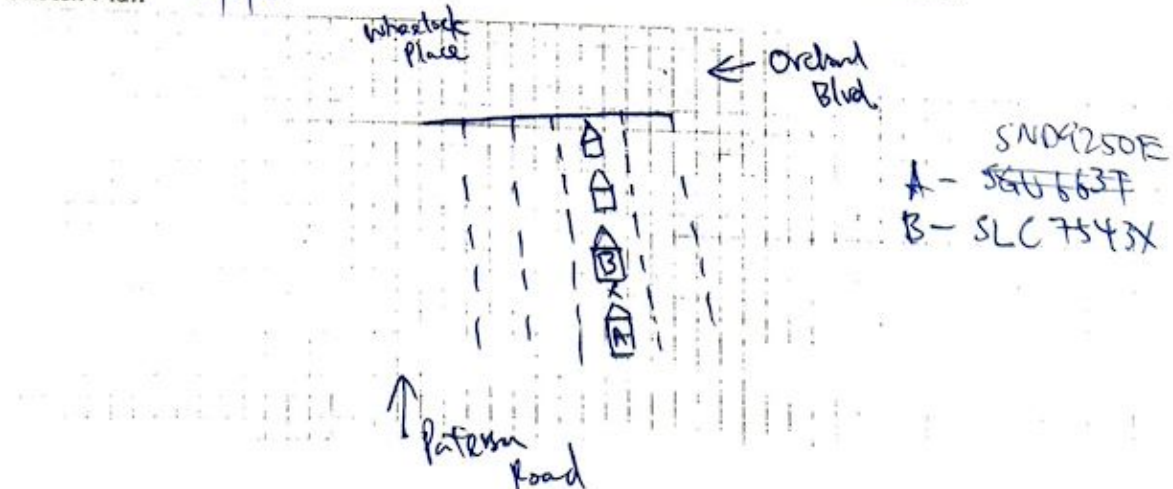 Wheelock
Place
← Orchard
Blvd.
SND9250E
A - SGU6637F
B - SLC7543X
B
x
A
↑ Paterson
Road